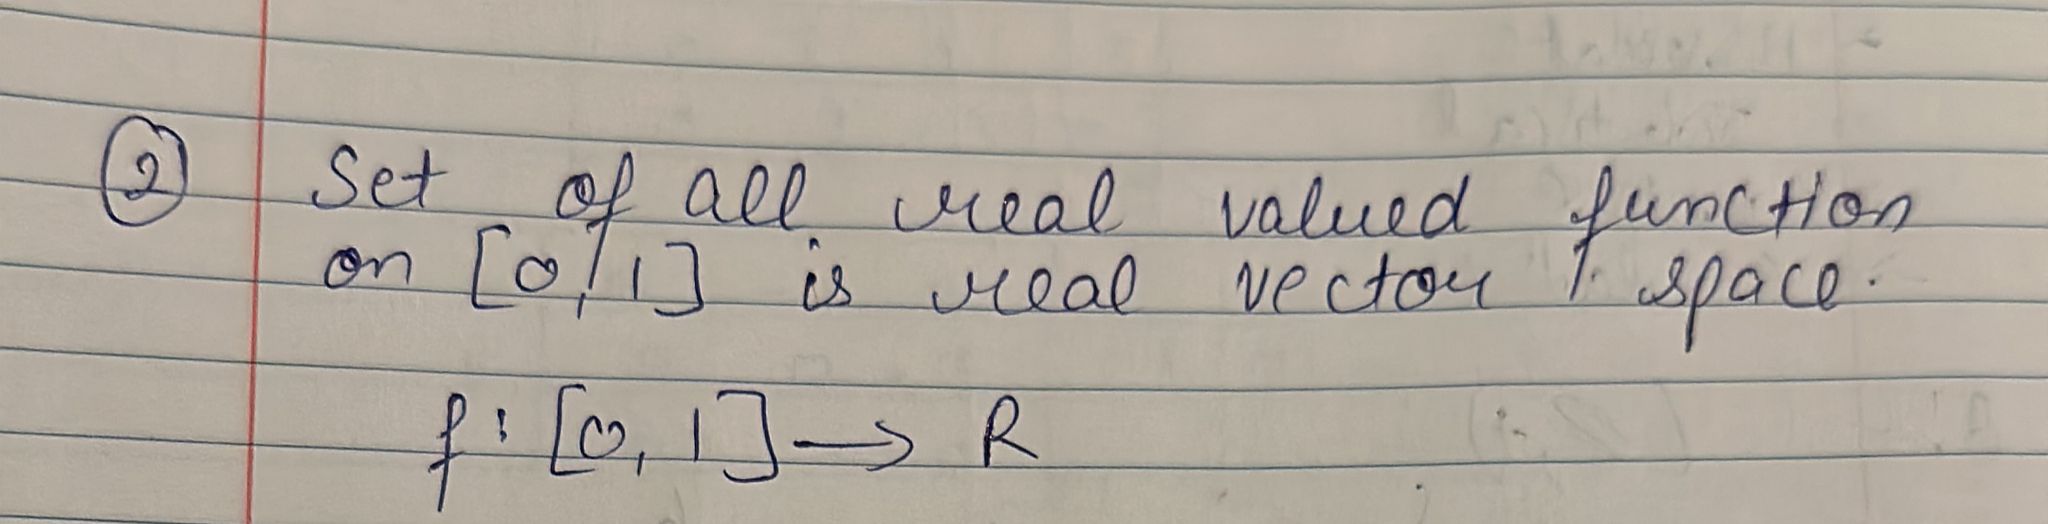 ② Set of all real valued function
on [0, 1] is real vector space.
f : [0, 1] → R